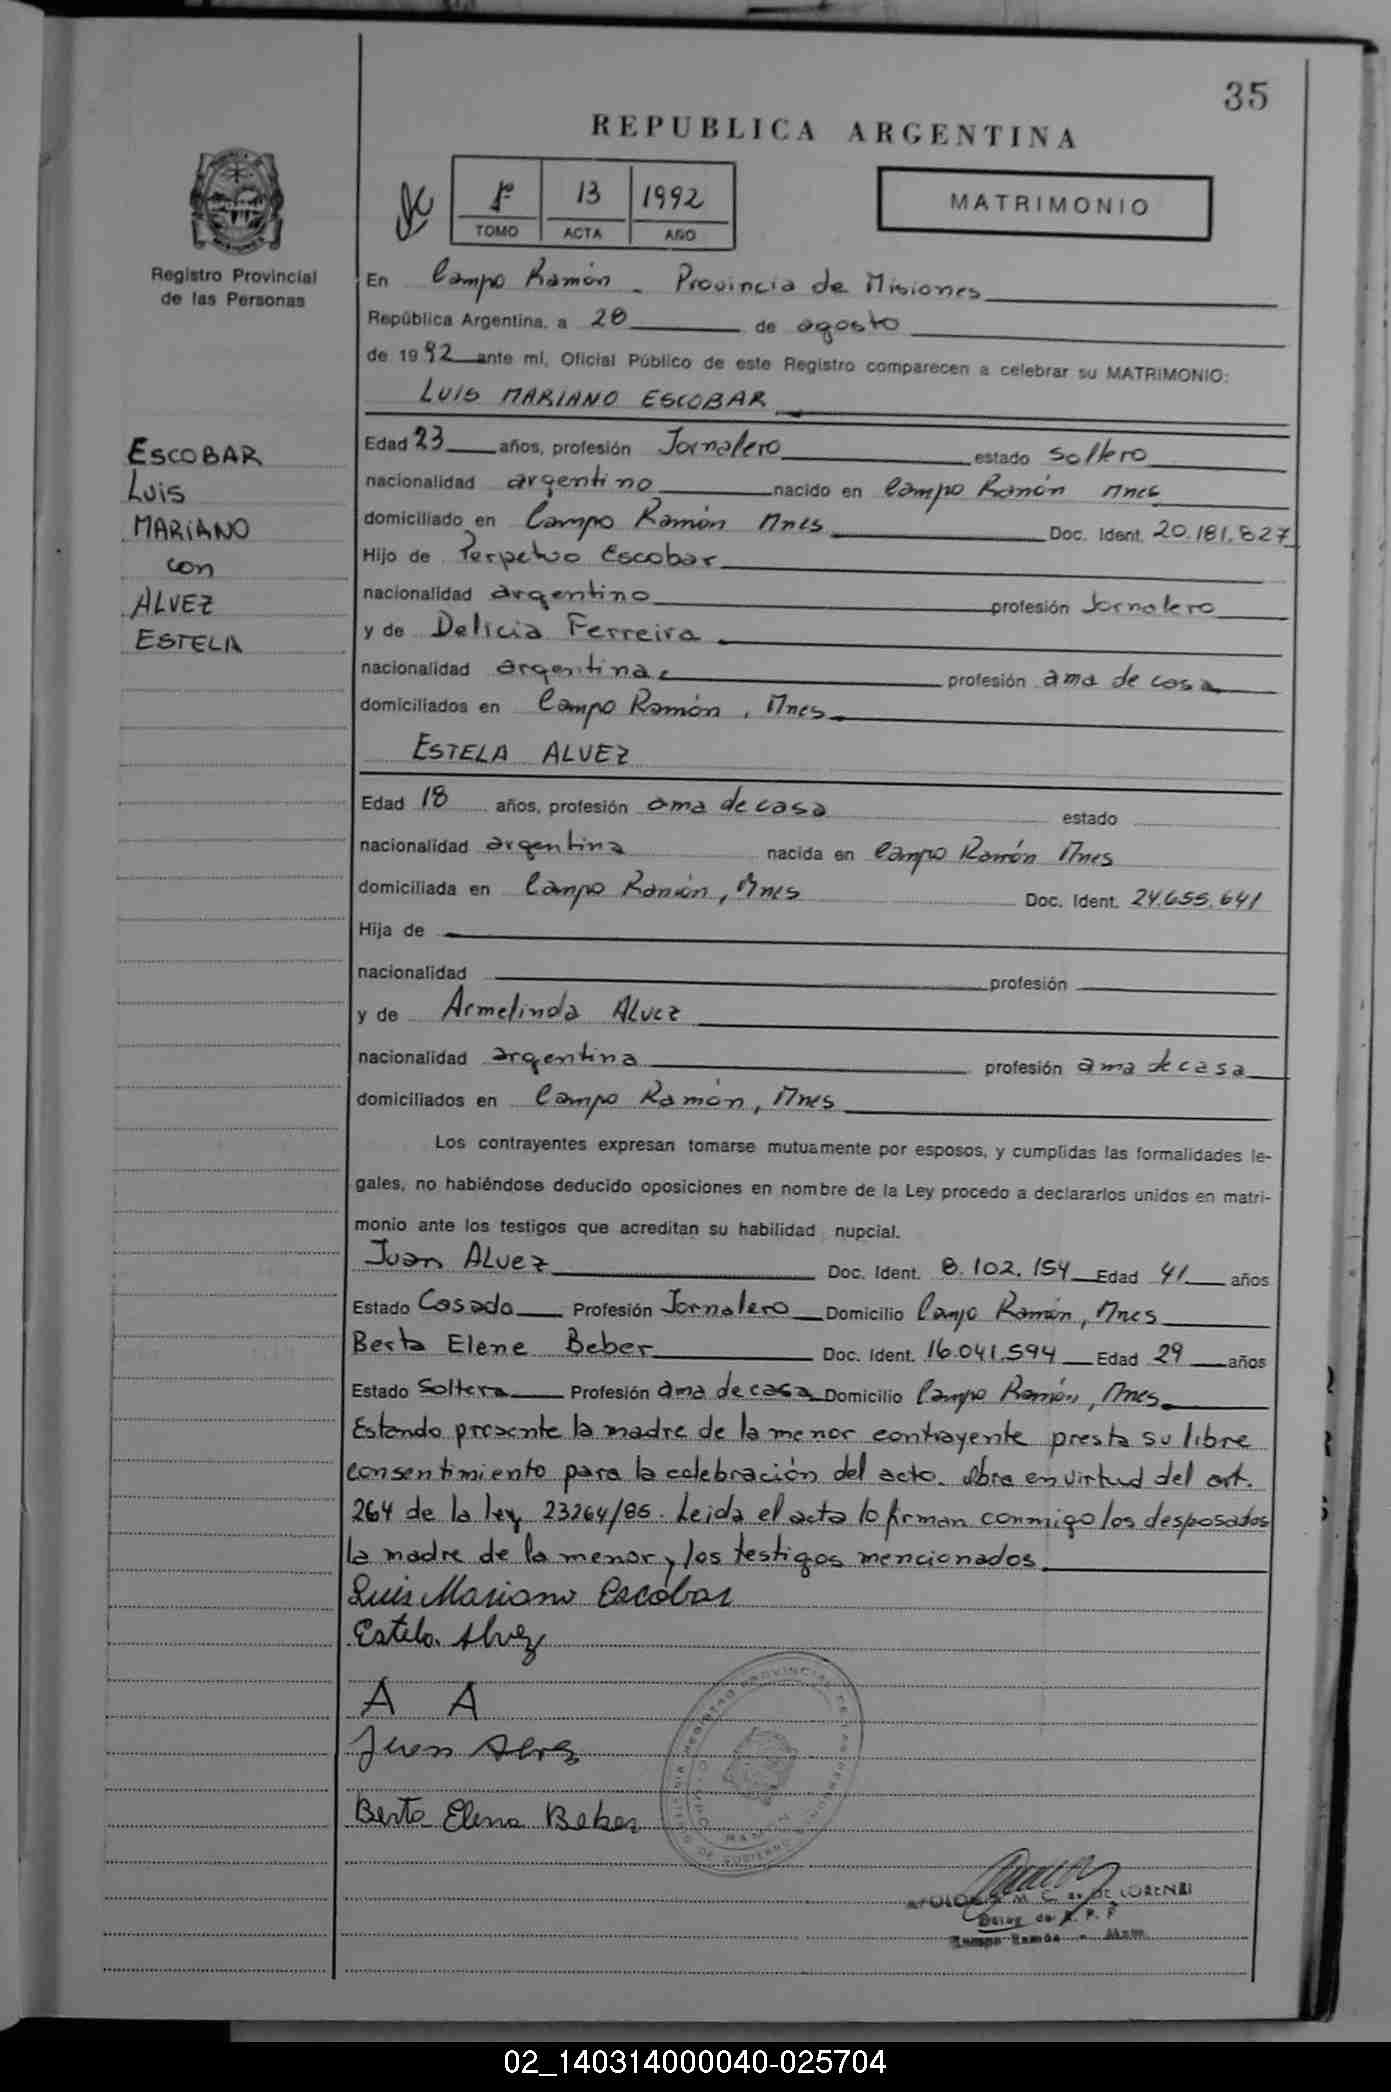 35
REPUBLICA ARGENTINA
1º 13 1992
TOMO ACTA AÑO
MATRIMONIO
Registro Provincial
de las Personas
ESCOBAR
LUIS
MARIANO
con
ALVEZ
ESTELA
En Campo Ramón - Provincia de Misiones
República Argentina, a 28 de agosto
de 1992 ante mí, Oficial Público de este Registro comparecen a celebrar su MATRIMONIO:
LUIS MARIANO ESCOBAR
Edad 23 años, profesión Jornalero estado soltero
nacionalidad argentino nacido en Campo Ramón Mnes
domiciliado en Campo Ramón Mnes Doc. Ident. 20.181.827
Hijo de Perpetuo Escobar
nacionalidad argentino profesión Jornalero
y de Delicia Ferreira
nacionalidad argentina profesión ama de casa
domiciliados en Campo Ramón, Mnes
ESTELA ALVEZ
Edad 18 años, profesión ama de casa estado
nacionalidad argentina nacida en Campo Ramón Mnes
domiciliada en Campo Ramón, Mnes Doc. Ident. 24.655.641
Hija de
nacionalidad profesión
y de Armelinda ALVEZ
nacionalidad argentina profesión ama de casa
domiciliados en Campo Ramón, Mnes
Los contrayentes expresan tomarse mutuamente por esposos, y cumplidas las formalidades le-
gales, no habiéndose deducido oposiciones en nombre de la Ley procedo a declararlos unidos en matri-
monio ante los testigos que acreditan su habilidad nupcial.
Juan ALVEZ Doc. Ident. 8.102.154 Edad 41 años
Estado Casado Profesión Jornalero Domicilio Campo Ramón, Mnes
Berta Elene Beber Doc. Ident. 16.041.594 Edad 29 años
Estado Soltera Profesión ama de casa Domicilio Campo Ramón, Mnes
Estando presente la madre de la menor contrayente presta su libre
consentimiento para la celebración del acto. Obra en virtud del art.
264 de la ley 23264/85. Leida el acta lo firman conmigo los desposados
la madre de la menor y los testigos mencionados
Luis Mariano Escobar
Estela Alvez
A A
Juan Alvez
Berta Elena Beber
REGISTRO PROVINCIAL DE LAS PERSONAS
MINISTERIO DE GOBIERNO
CAMPO RAMON
M. C. de DE LORENZI
Deleg. de R. P. P.
Campo Ramón - Mnes.
02_140314000040-025704